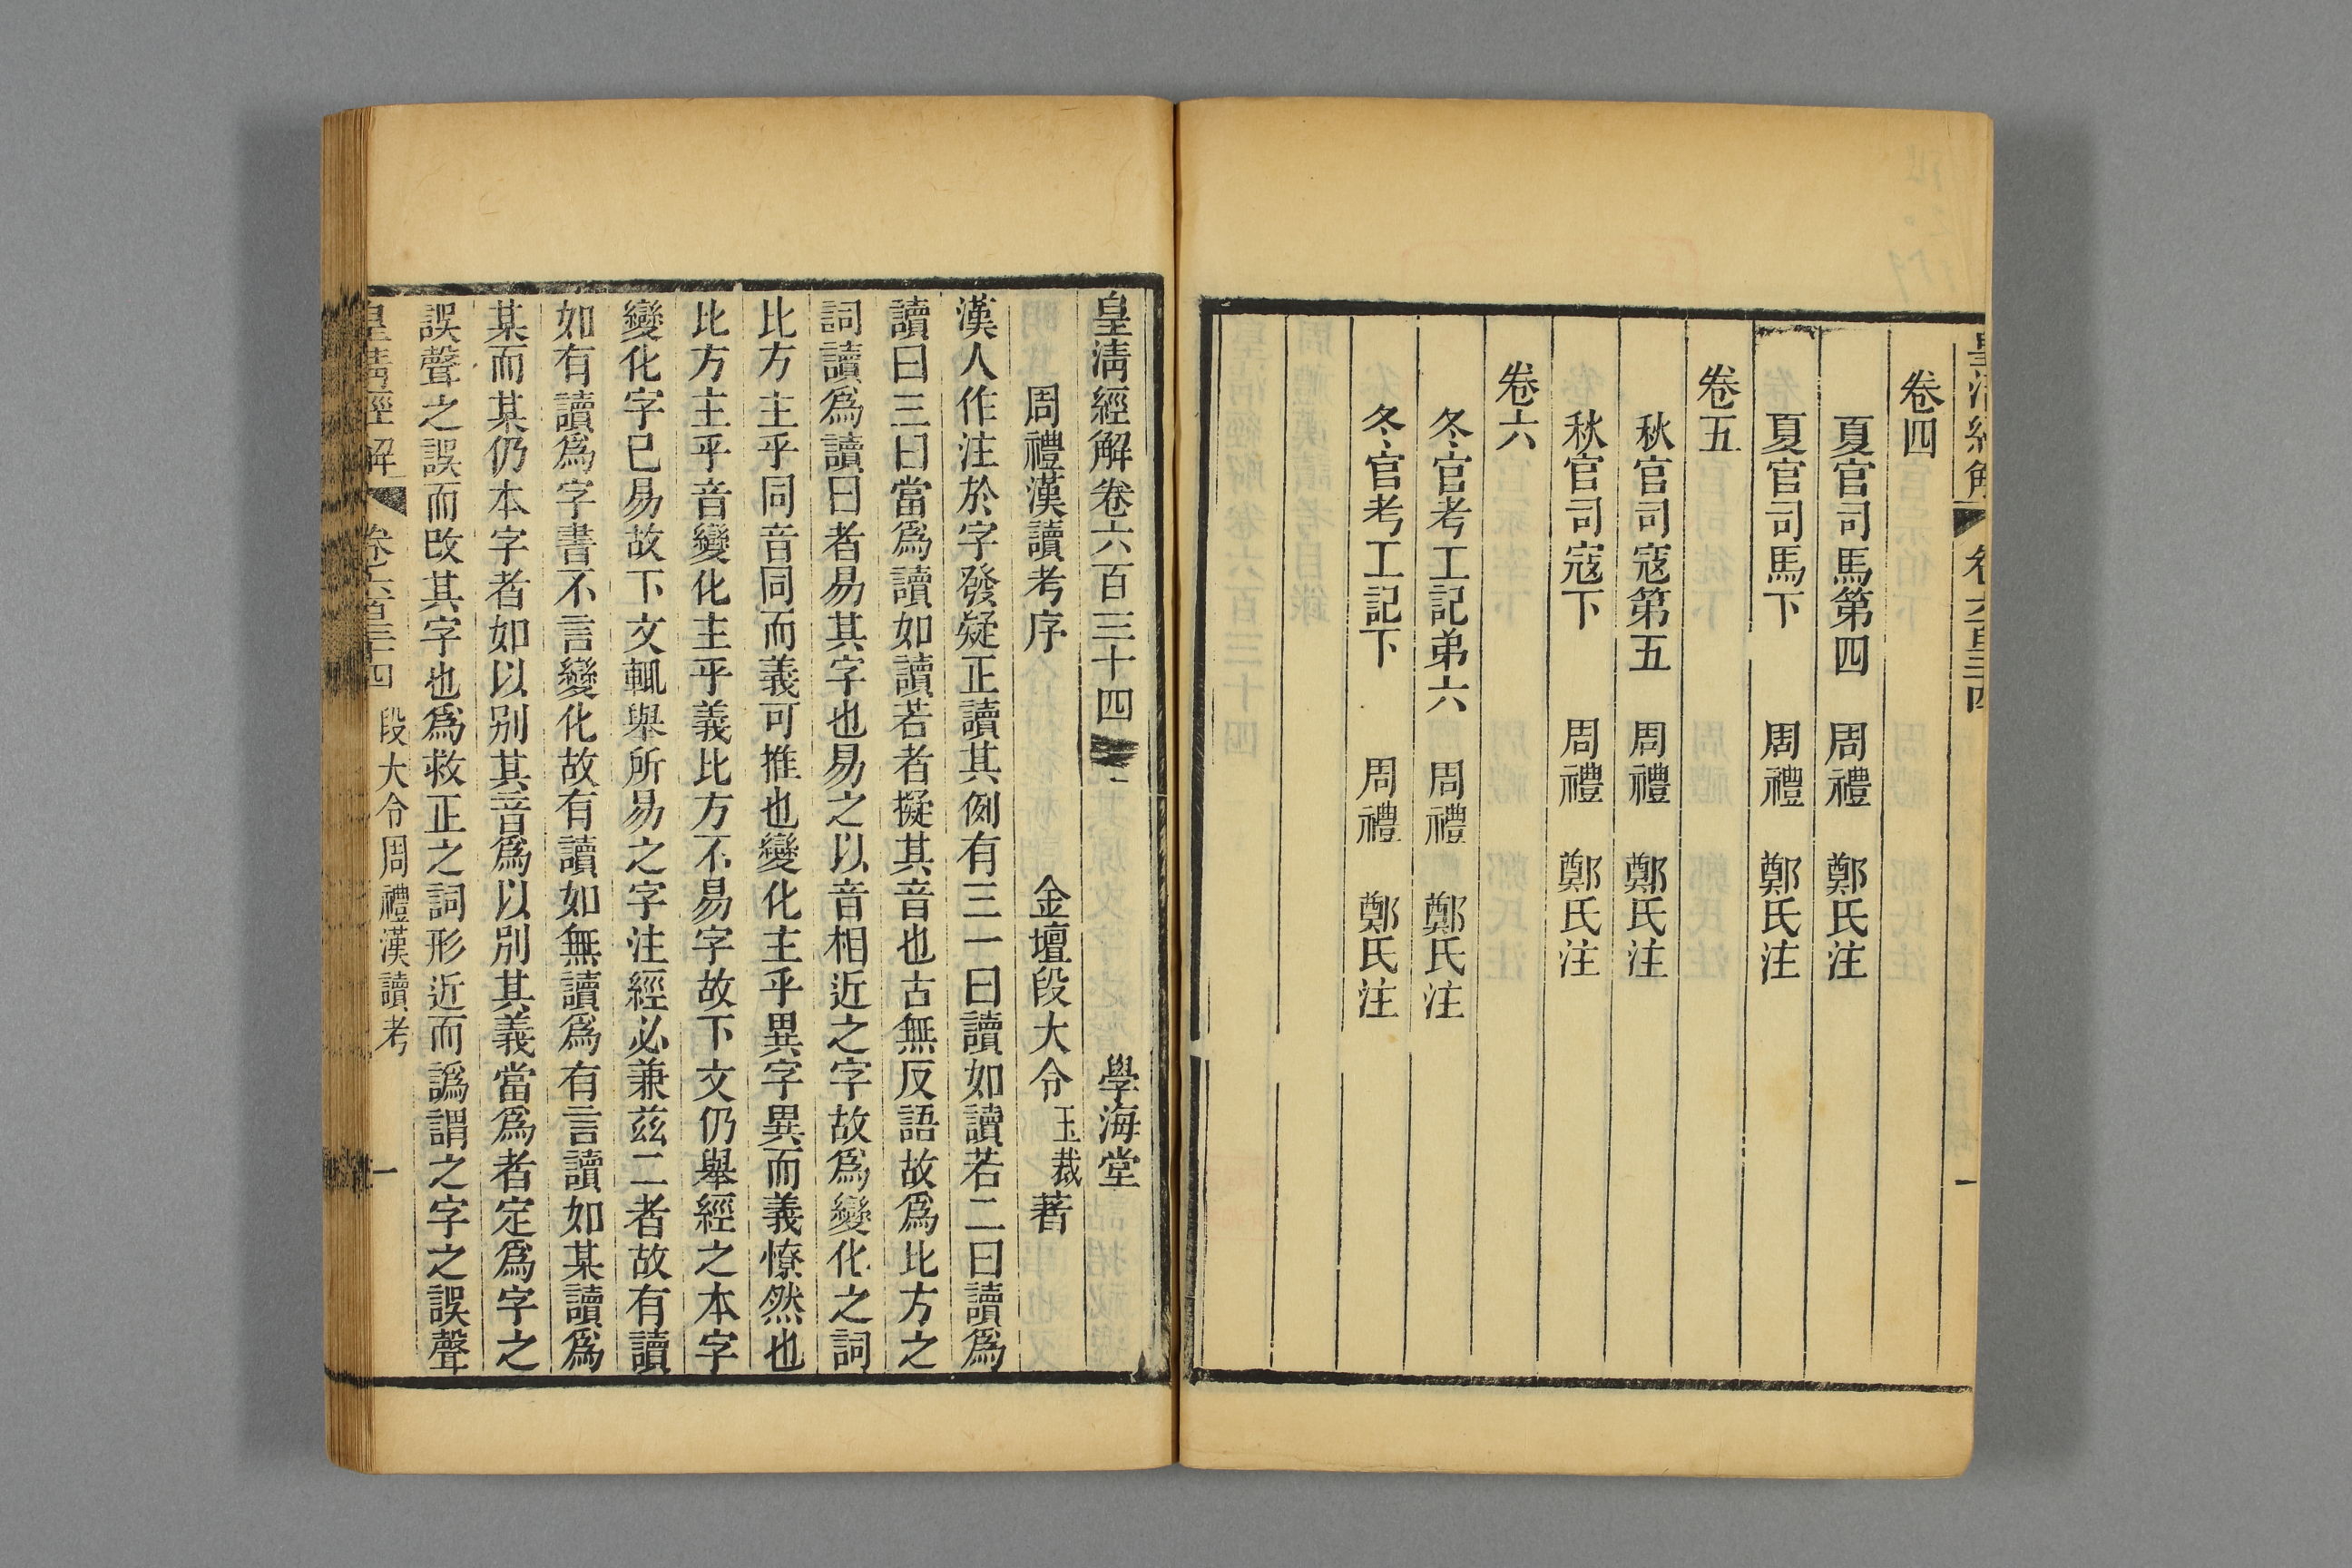 卷四
夏官司馬第四 周禮 鄭氏注
夏官司馬下 周禮 鄭氏注
卷五
秋官司寇第五 周禮 鄭氏注
秋官司寇下 周禮 鄭氏注
卷六
冬官考工記弟六 周禮 鄭氏注
冬官考工記下 周禮 鄭氏注
皇清經解卷六百三十四 一 學海堂
周禮漢讀考序 金壇段大令玉裁著
漢人作注於字發疑正讀其例有三一曰讀如讀若二曰讀爲
讀曰三曰當爲讀如讀若者擬其音也古無反語故爲比方之
詞讀爲讀曰者易其字也易之以音相近之字故爲變化之詞
比方主乎同音同而義可推也變化主乎異字異而義憭然也
比方主乎音變化主乎義比方不易字故下文仍舉經之本字
變化字已易故下文輒舉所易之字注經必兼茲二者故有讀
如有讀爲字書不言變化故有讀如無讀爲有言讀如某讀爲
某而某仍本字者如以別其音爲以別其義當爲者定爲字之
誤聲之誤而改其字也爲救正之詞形近而譌謂之字之誤聲
皇清經解 卷六百三十四 段大令周禮漢讀考 一